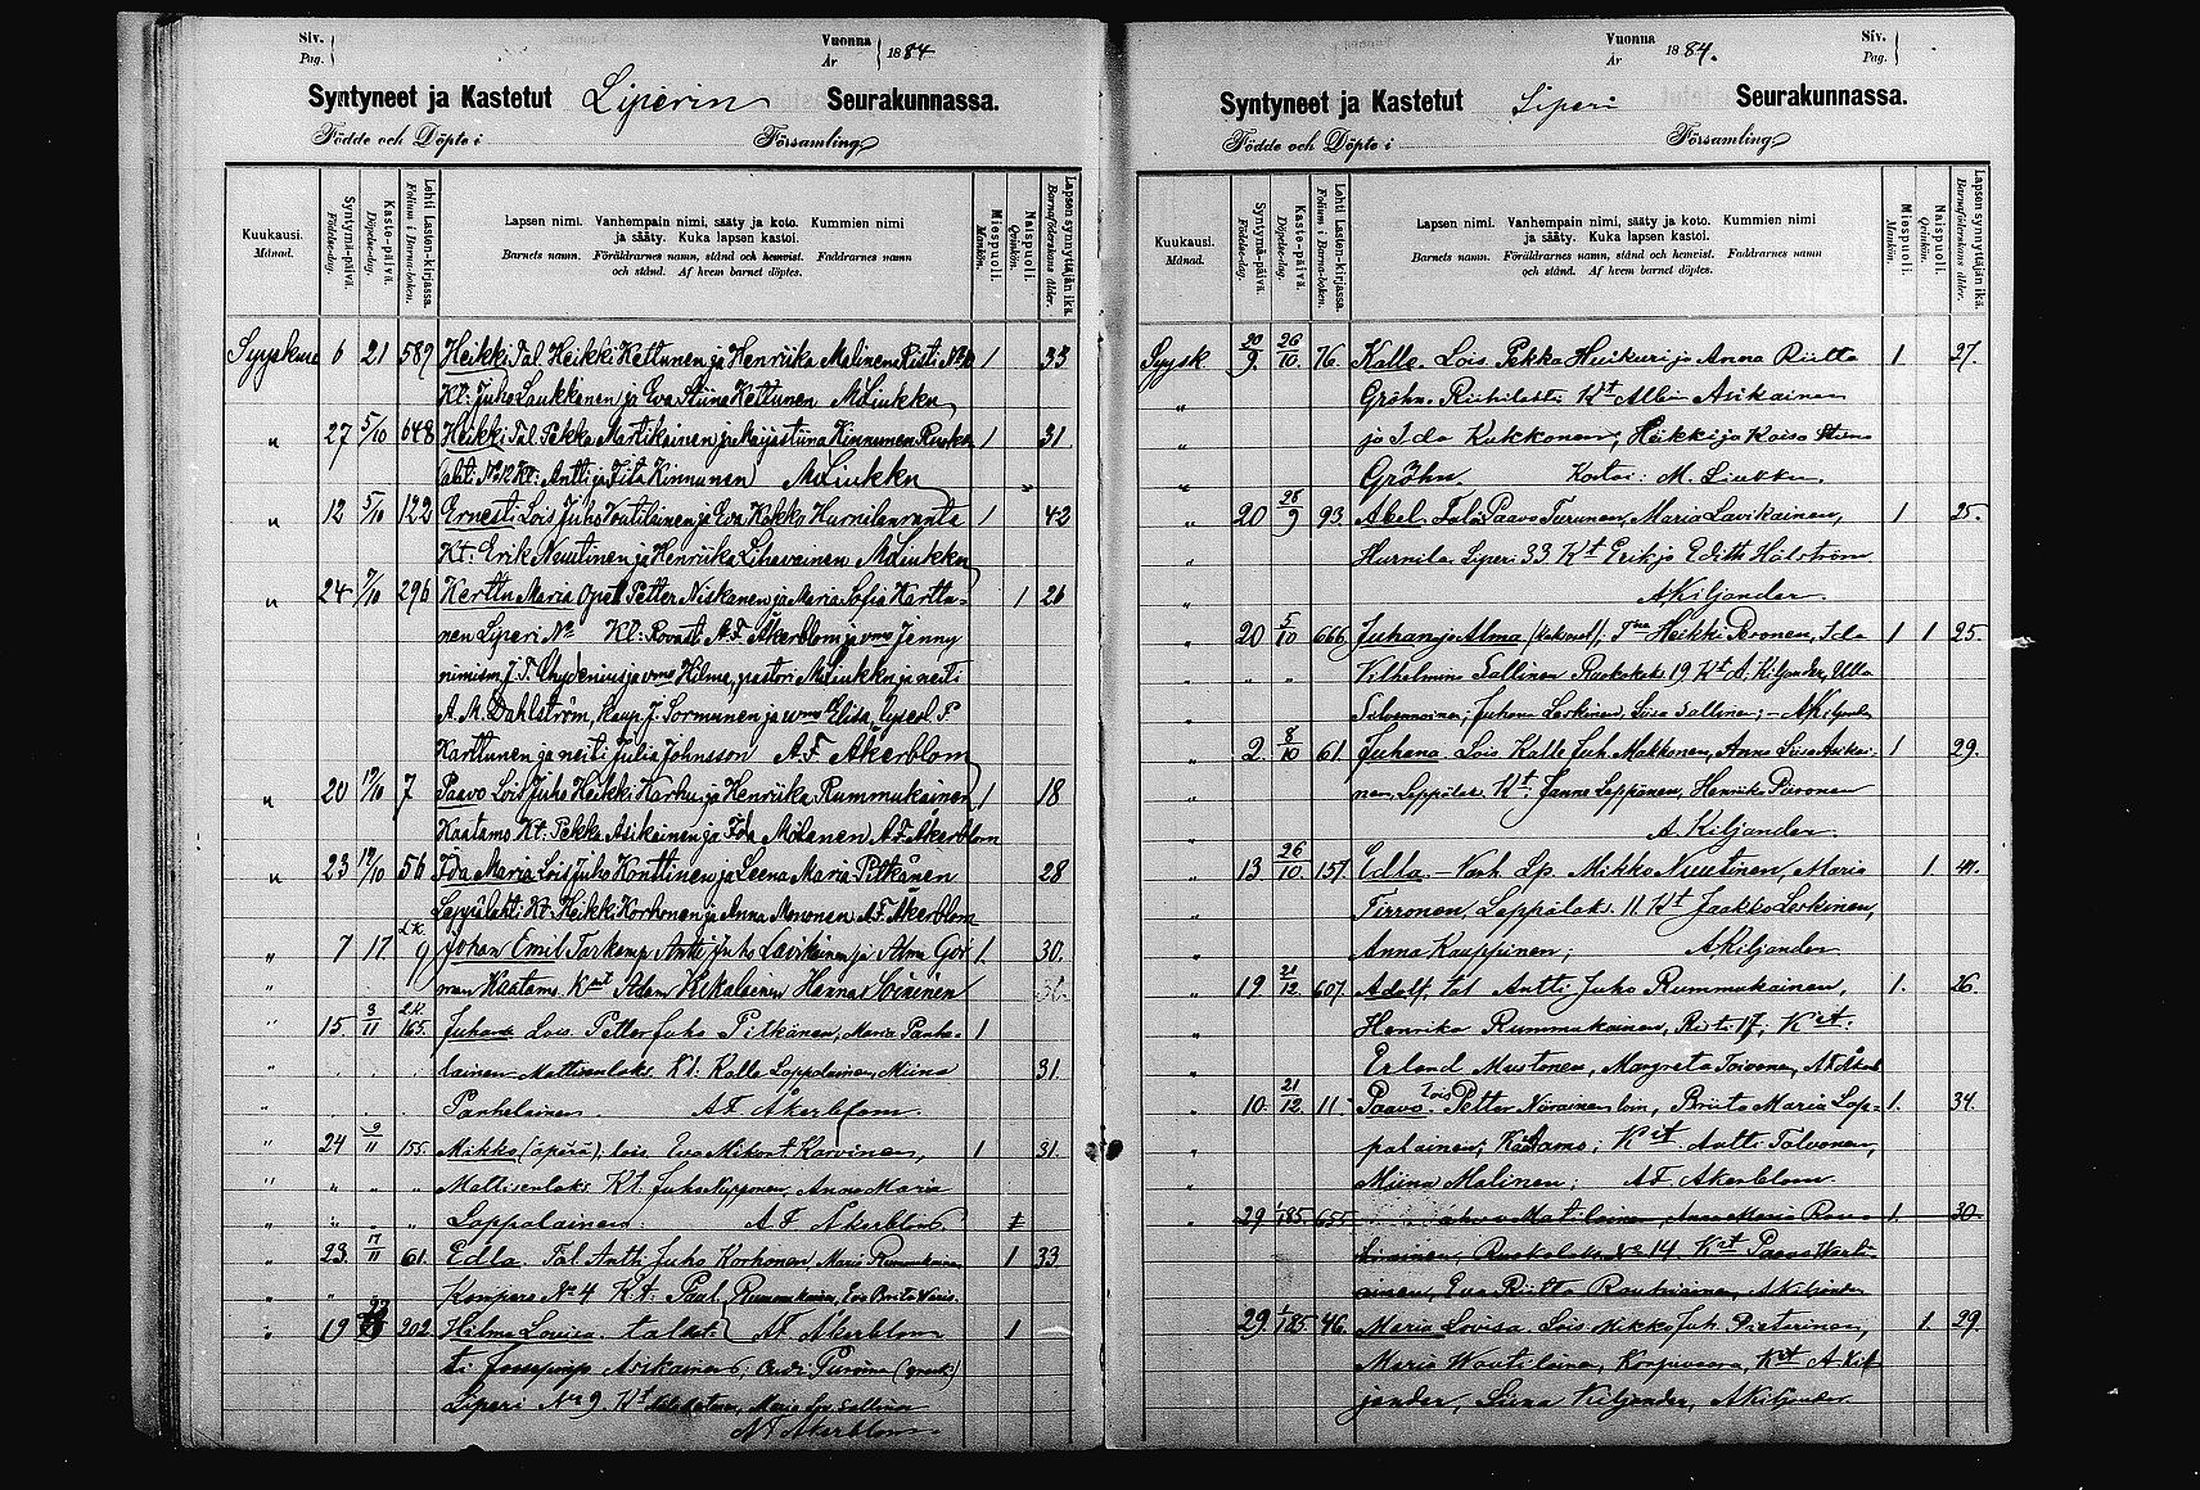 Siv.
Pag.
Vuonna
År
1884
Syntyneet ja Kastetut Liperin Seurakunnassa.
Födde och Döpte i Församling
Kuukausi.
Månad.
Syntymä-päivä.
Födelse-dag.
Kaste-päivä.
Döpelse-dag.
Lehti Lasten-kirjassa.
Folium i Barna-boken.
Lapsen nimi. Vanhempain nimi, sääty ja koto. Kummien nimi
ja sääty. Kuka lapsen kastoi.
Barnets namn. Föräldrarnes namn, stånd och hemvist. Faddrarnes namn
och stånd. Af hvem barnet döptes.
Miespuoli.
Mankön.
Naispuoli.
Qvinkön.
Lapsen synnyttäjän ikä.
Barnaföderskans ålder.
Syyskuu 6 21 589 Heikki Tal. Heikki Kettunen ja Henriika Malinen Risti 1 33
Kt: Juho Laukkanen ja Eva Stiina Kettunen M Liukku
" 27 5/10 648 Heikki Tal. Pekka Martikainen ja Maijastiina Kinnunen 1 31
lahti No 12 Kt: Antti ja Kinnunen M Liukku
" 12 5/10 122 Ernesti Lois Juho Voutilainen ja Eva Kokko Hurnilanranta 1 42
Kt: Erik Nuutinen ja Henriika Lihavainen M Liukku
" 24 7/10 296 Kerttu Maria Petter Niskanen ja Maria Sofia Karttu- 1 26
nen Liperi No Kt: Rovasti A.F. Åkerblom ja vmo Jenny
nimism. J. T. Chydenius ja vmo Hilma, pastori M Liukku ja neiti
A. M. Dahlström, Kaup. J. Sormunen ja vmo Elisa,
Karttunen ja neiti Julia Johnsson A F Åkerblom
" 20 19/10 7 Paavo Lois Juho Heikki Karhu ja Henriika Rummukainen 1 18
Kaatamo Kt: Pekka Asikainen ja Ida Mölanen A.F. Åkerblom
" 23 19/10 56 Ida Maria Lois Juho Konttinen ja Leena Maria Pitkänen 28
Leppälahti Kt: Heikki Korhonen ja Anna Mononen A.F. Åkerblom
" 7 17. L.K. 9 Johan Emil Antti Juho Lavikainen ja Alma Gor 1. 30.
man Kaatamo. Adam Hanna Söininen
" 15. 3/11 165. Juhana Lois. Petter Juho Pitkänen, Maria Panha- 1
lainen Mattisenlaks. Kt: Kalle Loppolainen, Miina 31.
Panhelainen. A F Åkerblom.
" 24 9/11 155. Mikko (äpärä); lois. Eva Mikont. Karvinen, 1 31.
" " " " Mattisenlaks. Kt. Juho Nypponen, Anna Maria
" " " " Loppolainen. A F Åkerblom.
" 23. 17/11 61. Edla. Tal. Antti Juho Korhonen, Maria Rummukainen 1 33
" " Kompero No 4 Kt. Paul Rummukainen, Eva
" 19 23 202 Hilma Lovisa. A F Åkerblom 1
Asikainen;
Liperi No 9. Kt Maria Sallinen
A F Åkerblom
Vuonna
År
1884.
Siv.
Pag.
Syntyneet ja Kastetut Liperi Seurakunnassa.
Födde och Döpte i Församling
Kuukausi.
Månad.
Syntymä-päivä.
Födelse-dag.
Kaste-päivä.
Döpelse-dag.
Lehti Lasten-kirjassa.
Folium i Barna-boken.
Lapsen nimi. Vanhempain nimi, sääty ja koto. Kummien nimi
ja sääty. Kuka lapsen kastoi.
Barnets namn. Föräldrarnes namn, stånd och hemvist. Faddrarnes namn
och stånd. Af hvem barnet döptes.
Miespuoli.
Mankön.
Naispuoli.
Qvinkön.
Lapsen synnyttäjän ikä.
Barnaföderskans ålder.
Syysk. 20/9. 26/10. 76. Kalle. Lois. Pekka Huikuri ja Anna Riitta 1. 27.
" Gröhn. Kt Albin Asikainen
" ja Ida Kukkonen; Heikki ja Kaisa Stiina
" Gröhn. Kastoi: M. Liukku.
" 20 28/9 93. Abel. Tal. Paavo Turunen, Maria Lavikainen, 1 25.
" Hurnila Liperi 33 Kt Erik ja Edith Hälström.
" A Kiljander.
" 20 5/10 666. Juhan ja Alma (kaksoset); Heikki Peronen, Ida 1 1 25.
" " " Vilhelmina Sallinen 19 Kt A. Kiljander, Ulla
" Silvennoinen; Juhana Leskinen, Liisa Sallinen; - A Kiljander
" 2. 8/10 61. Juhana. Lois Kalle Juh. Makkonen, Anna Liisa Asikai- 1 29.
" nen, Leppälaks. Kt: Janne Leppänen, Henrika Piironen
" A. Kiljander.
" 13 26/10. 157. Edla. - Lp. Mikko Nuutinen, Maria 1. 41.
" Tirronen, Leppälaks. 11. Kt Jaakko Leskinen,
" Anna Kauppinen; A Kiljander
" 19 21/12. 607. Adolf, tal Antti Juho Rummukainen, 1. 26.
" Henrika Rummukainen, Risti 17; Kit:
" Erland Mustonen, Margreta Toivonen, A F Åkerb
" 10. 21/12. 11. Paavo. lois Petter Niiranen Briita Maria Lop- 1. 34.
" palainen; Kaatamo; Kit. Antti Tolvonen,
" Miina Malinen; A F. Åkerblom.
" 29 1/1 85. 655 Matilainen, Anna Maria 1. 30.
No 14. Kit Paavo
Eva Riitta Rautiainen, A Kiljander
29. 1/1 85. 46. Maria Lovisa. Lois Mikko Juh. Pietarinen, 1. 29.
Maria Woutilainen, Korpivaara, Kit A. Kil-
jander, Liina Kiljander, A Kiljander.